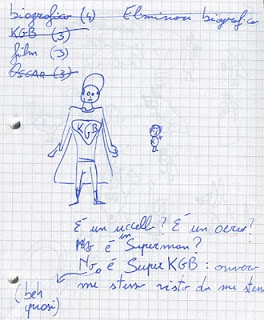 biografico (4) Eliminare biografico
KGB (3)
film (3)
Oscar (3)
KGB
È un uccello? È un aereo?
No è un Superman?
No, è Super KGB: ovvero
me stesso visto da me stesso
(ben
quasi)